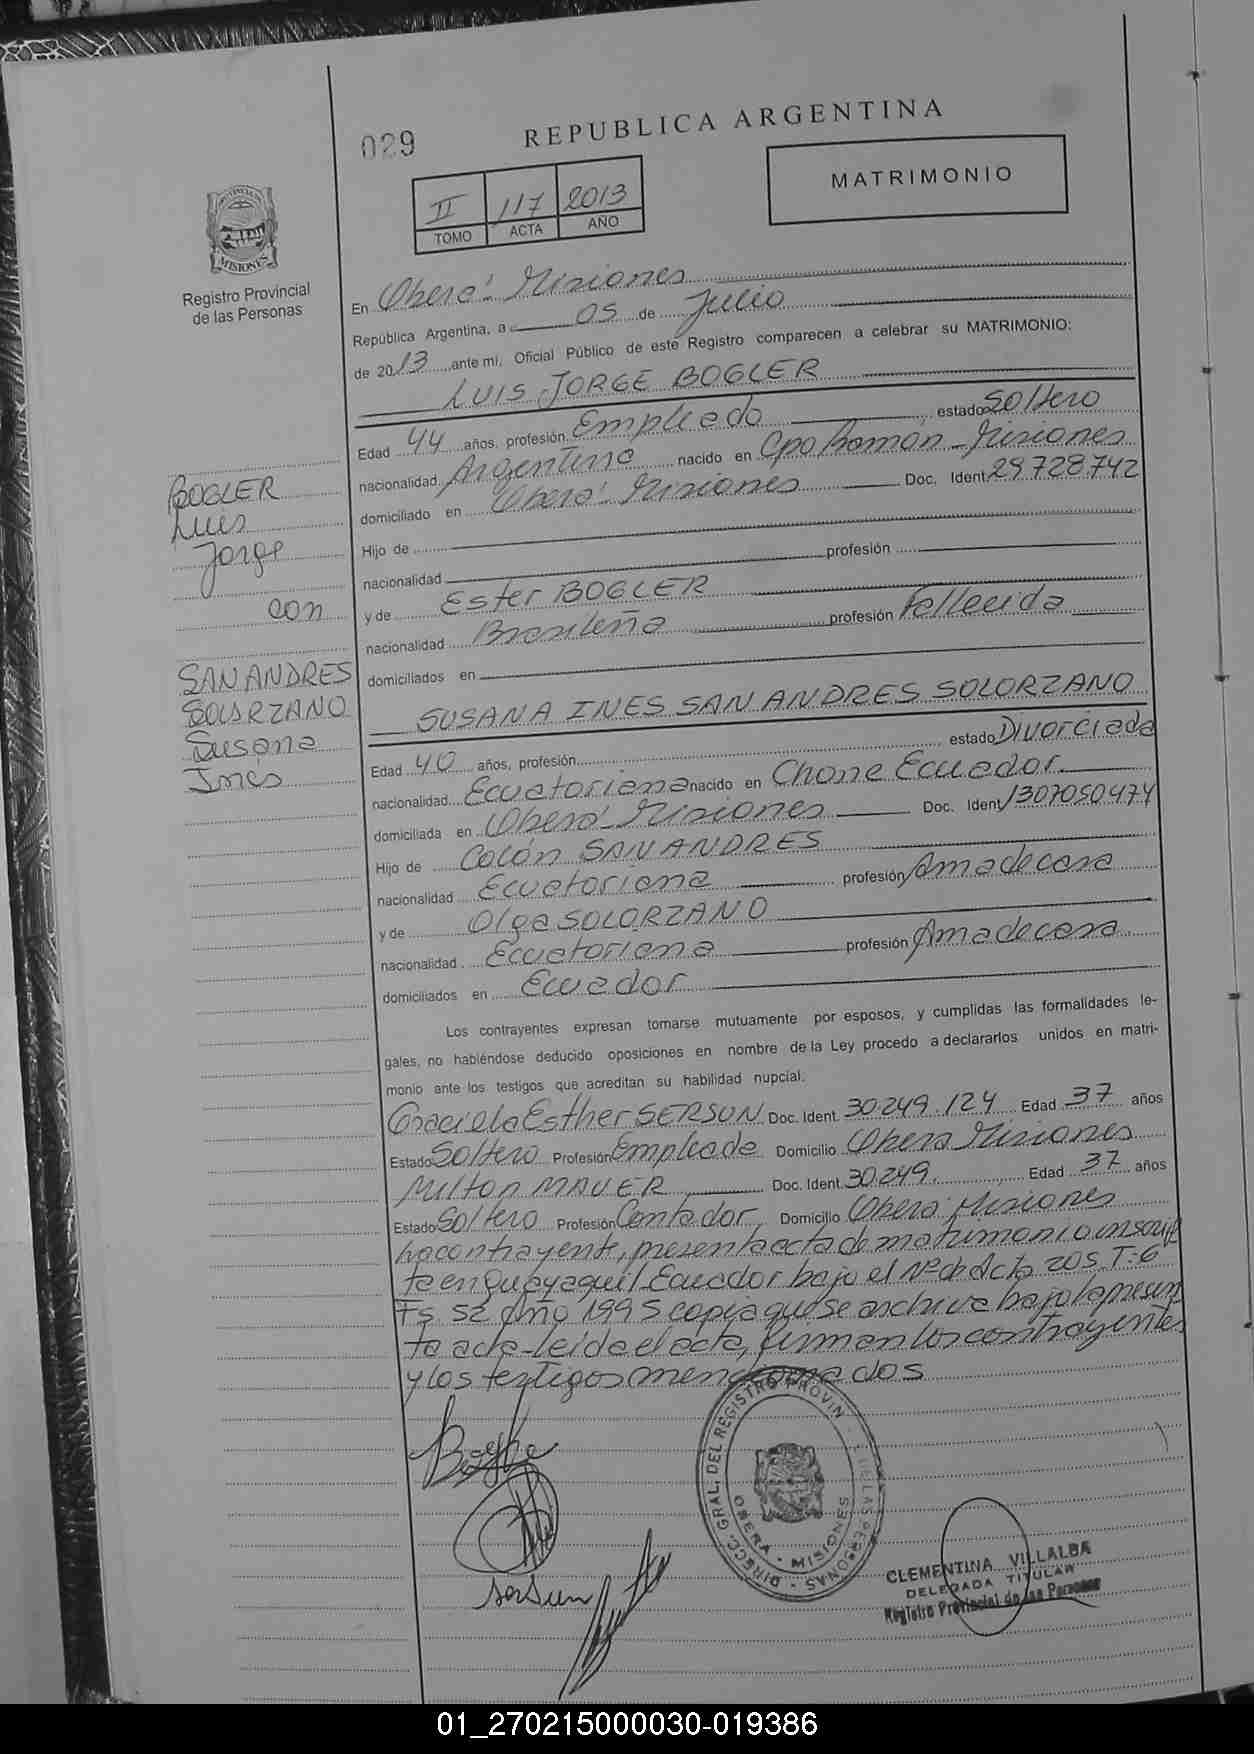 029
REPUBLICA ARGENTINA
II 117 2013
TOMO ACTA AÑO
MATRIMONIO
PROVINCIA
MISIONES
Registro Provincial
de las Personas
En Oberá - Misiones
República Argentina, a 05 de Julio
de 2013 ante mi, Oficial Público de este Registro comparecen a celebrar su MATRIMONIO:
LUIS JORGE BOGLER
Edad 44 años, profesión Empleado estado Soltero
nacionalidad Argentino nacido en Cpo Ramón - Misiones
domiciliado en Oberá - Misiones Doc. Ident 29.728.742
Hijo de
nacionalidad profesión
y de Ester BOGLER
nacionalidad Brasileña profesión Fallecida
domiciliados en
SUSANA INES SAN ANDRES SOLORZANO
Edad 40 años, profesión estado Divorciada
nacionalidad Ecuatoriana nacido en Chone Ecuador
domiciliada en Oberá - Misiones Doc. Ident 1307050474
Hijo de Colón SAN ANDRES
nacionalidad Ecuatoriana profesión Ama de casa
y de Olga SOLORZANO
nacionalidad Ecuatoriana profesión Ama de casa
domiciliados en Ecuador
BOGLER
Luis
Jorge
con
SAN ANDRES
SOLORZANO
Susana
Inés
Los contrayentes expresan tomarse mutuamente por esposos, y cumplidas las formalidades le-
gales, no habiéndose deducido oposiciones en nombre de la Ley procedo a declararlos unidos en matri-
monio ante los testigos que acreditan su habilidad nupcial.
Graciela Esther SERSUN Doc. Ident. 30.249.124 Edad 37 años
Estado Soltero Profesión Empleada Domicilio Oberá Misiones
Milton MAUER Doc. Ident. 30.249. Edad 37 años
Estado Soltero Profesión Contador Domicilio Oberá Misiones
La contrayente, presenta acta de matrimonio inscrip
ta en Guayaquil Ecuador bajo el Nº de Acta 205 T:6
Fs 52 Año 1995 copia que se archiva bajo la presen
te acta - leída el acta, firman los contrayentes
y los testigos mencionados
Sersun
DIRECC. GRAL. DEL REGISTRO PROVIN. DE LAS PERSONAS
OBERA - MISIONES
CLEMENTINA VILLALBA
DELEGADA TITULAR
Registro Provincial de las Personas
01_270215000030-019386